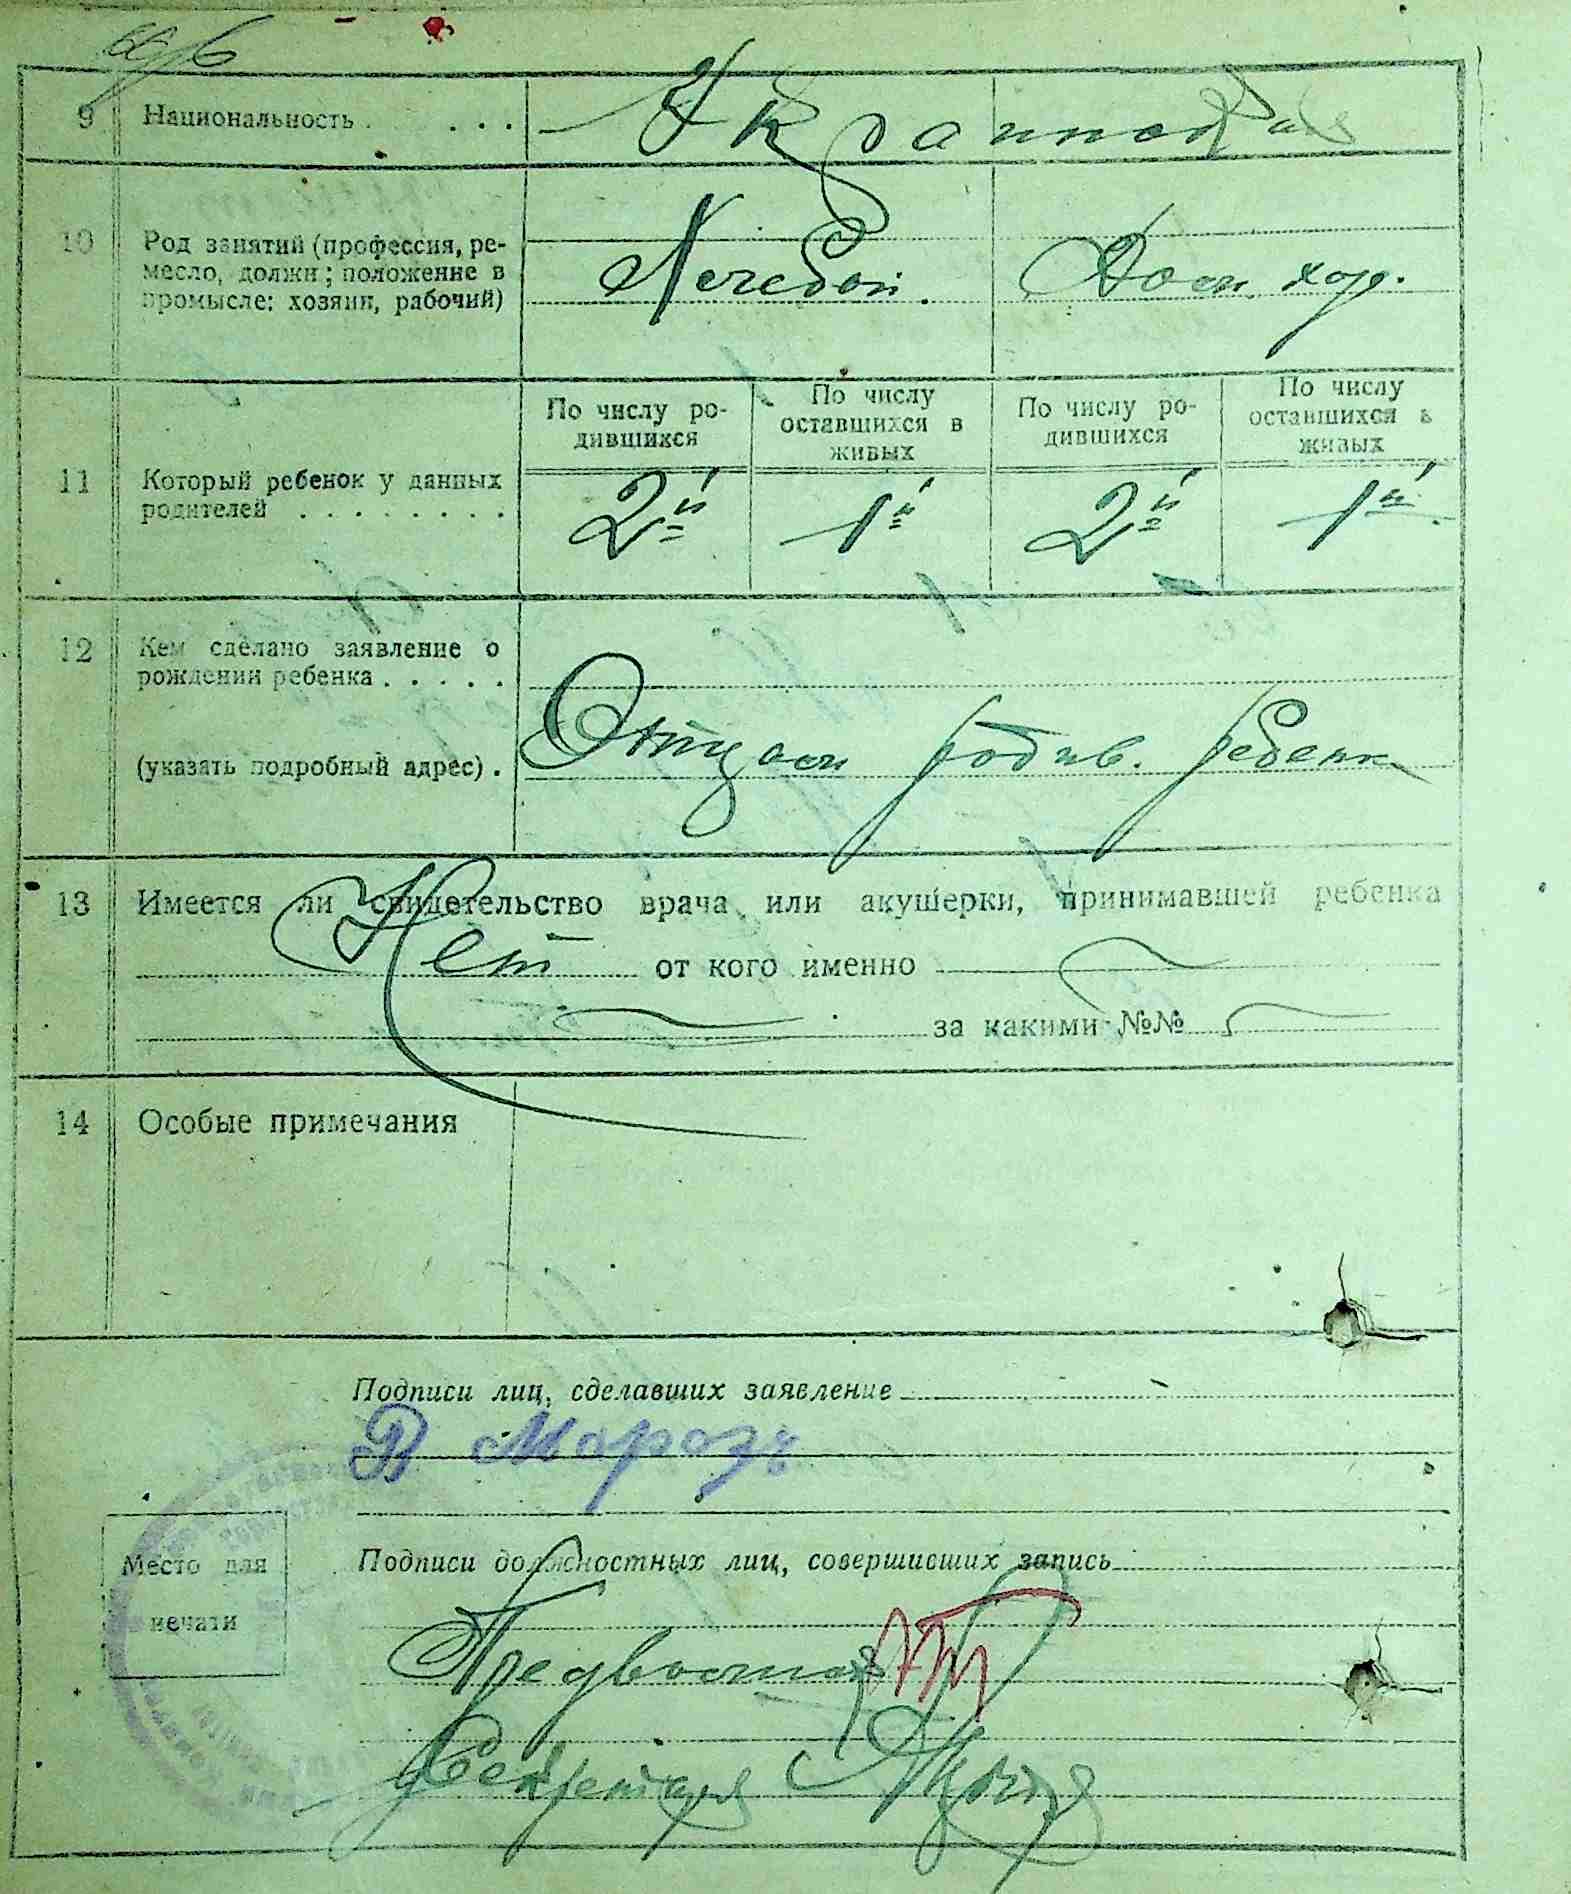 9 Национальность . . . . Украинская
10 Род занятий (профессия, ре-
месло, должн; положение в
промысле: хозяин, рабочий)
Хлебоп. Дом. хоз.
11 Который ребенок у данных
родителей . . . . . . . .
По числу ро-
дившихся
По числу
оставшихся в
живых
По числу ро-
дившихся
По числу
оставшихся в
живых
2й 1й 2й 1й
12 Кем сделано заявление о
рождении ребенка . . . . .
(указать подробный адрес) .
Отцом родив. ребенка
13 Имеется ли свидетельство врача или акушерки, принимавшей ребенка
Нет от кого именно
за какими №№
14 Особые примечания
Подписи лиц, сделавших заявление
В Морозъ
Место для
печати
Подписи должностных лиц, совершивших запись
Секретарь